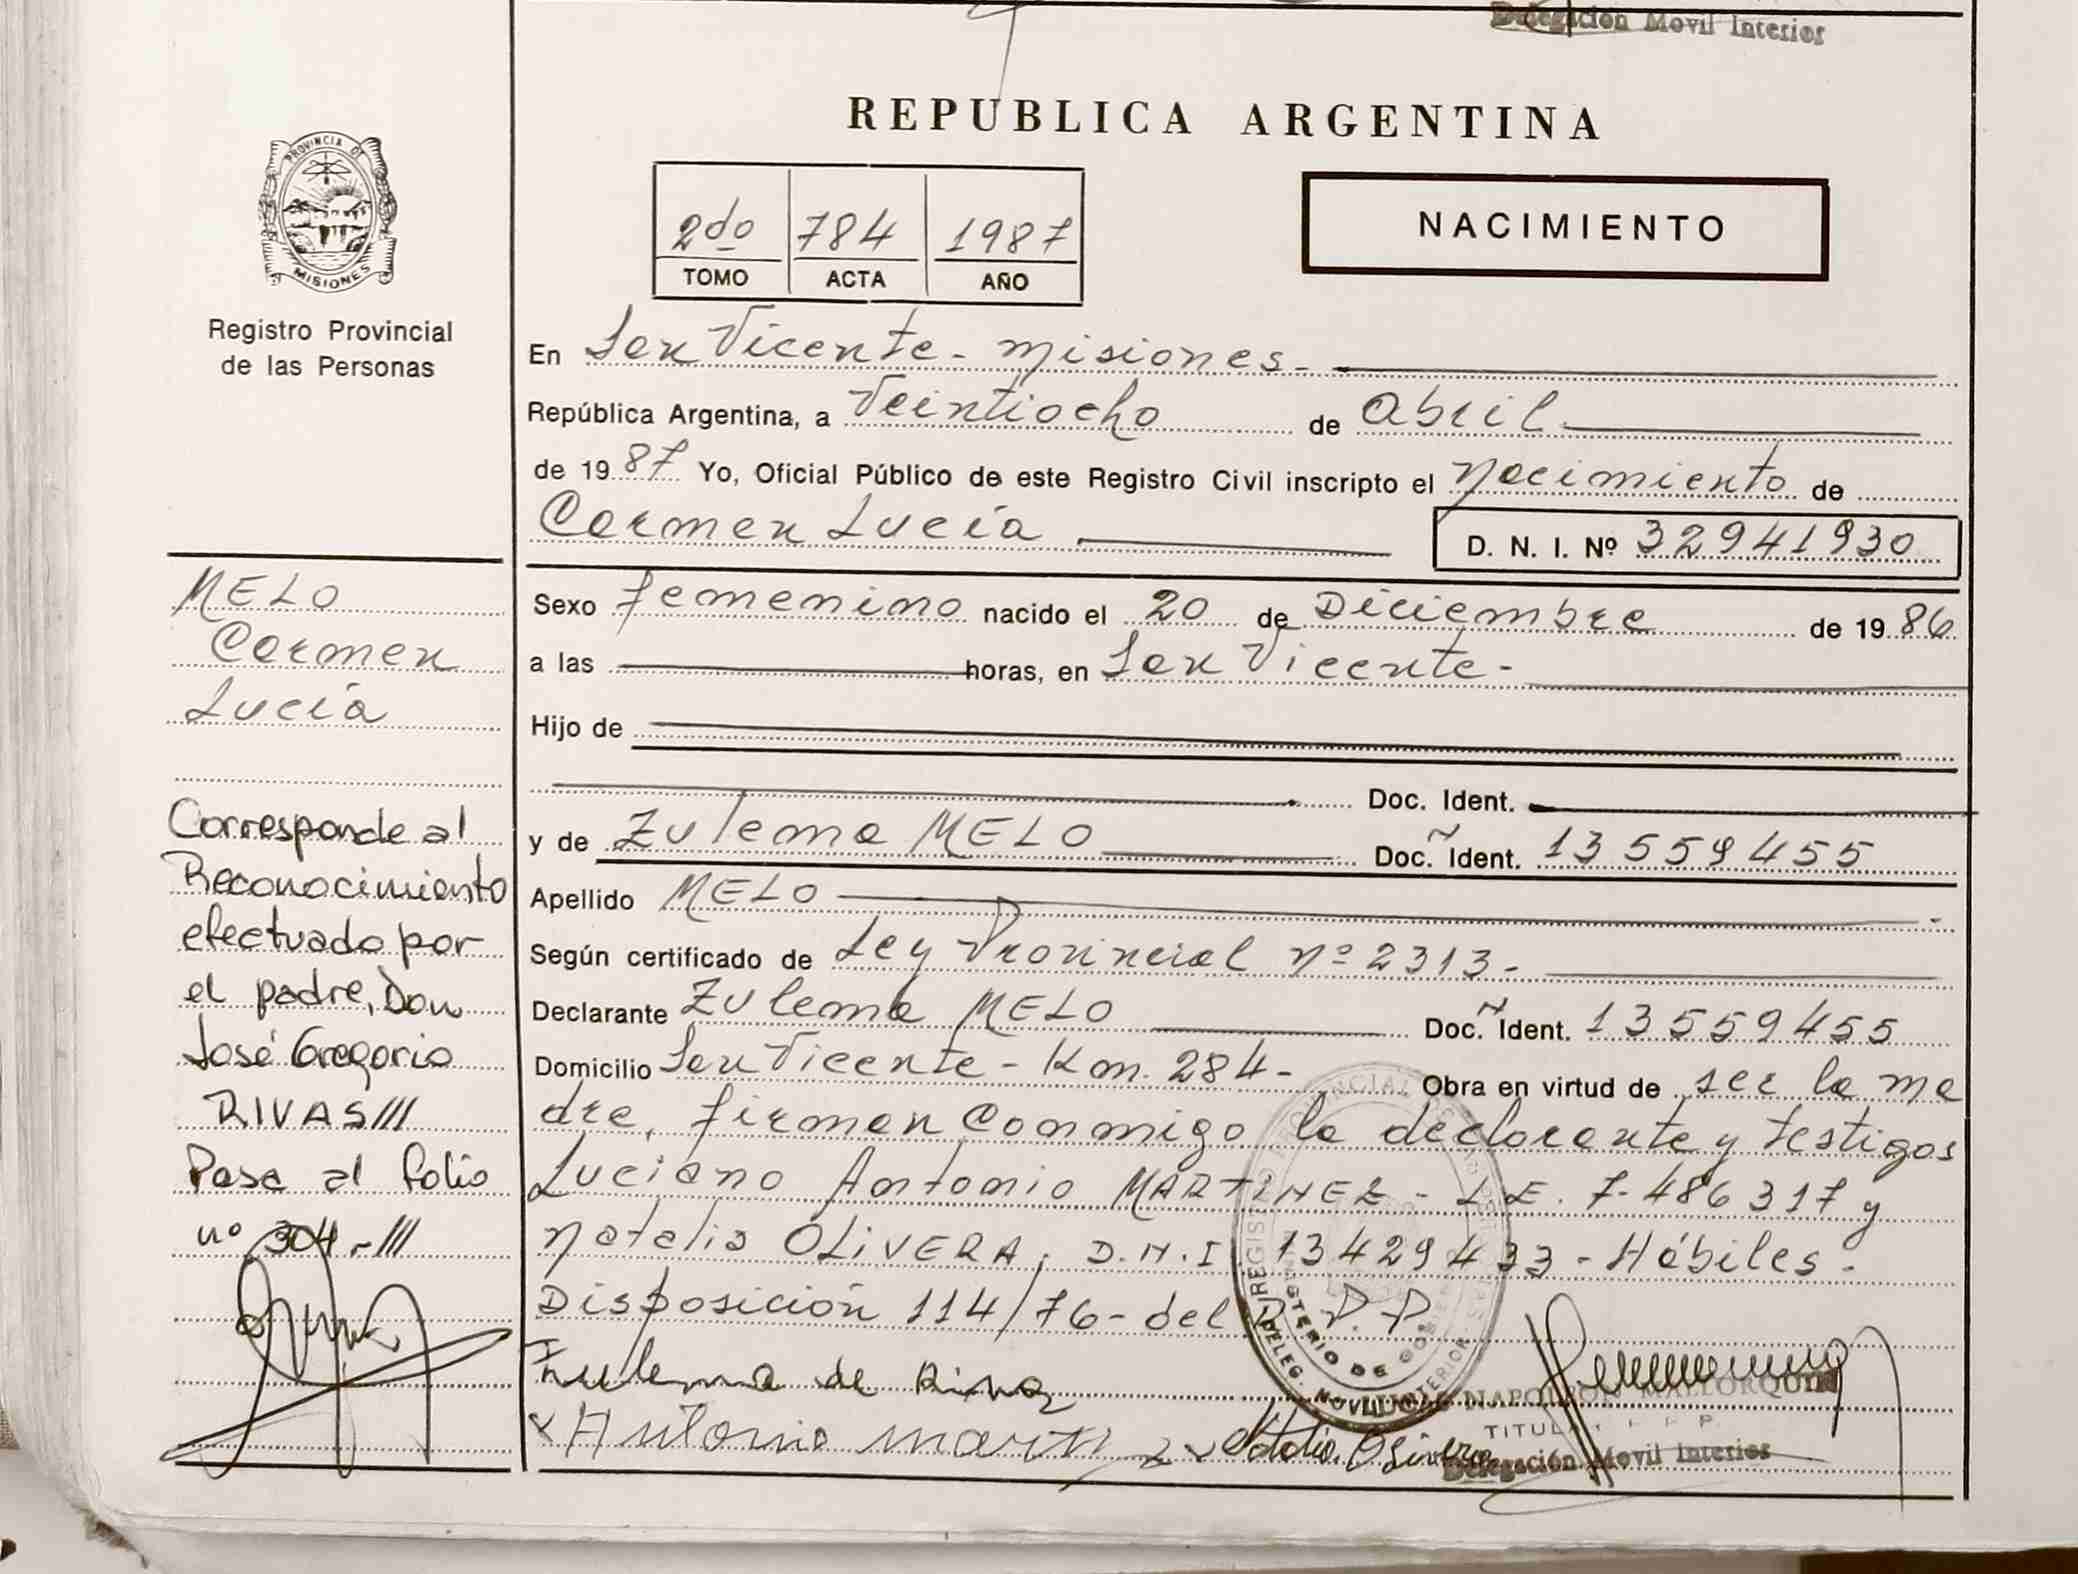 Delegación Movil Interior
REPUBLICA ARGENTINA
PROVINCIA DE
MISIONES
Registro Provincial
de las Personas
2do 784 1987
TOMO ACTA AÑO
NACIMIENTO
En San Vicente - Misiones -
República Argentina, a Veintiocho de Abril
de 19 87 Yo, Oficial Público de este Registro Civil inscripto el Nacimiento de
Carmen Lucía D. N. I. Nº 32941930
Sexo femenino nacido el 20 de Diciembre de 19 86
a las horas, en San Vicente -
Hijo de
Doc. Ident.
y de Zulema MELO Doc. Ident. 13559455
Apellido MELO
Según certificado de Ley Provincial nº 2313 -
Declarante Zulema MELO Doc. Ident. 13559455
Domicilio San Vicente - Km. 284 - Obra en virtud de ser la ma
dre, firman conmigo la declarante y testigos
Luciano Antonio MARTINEZ - L.E. 7.486317 y
Natalia OLIVERA, D.N.I. 13429433 - Hábiles -
Disposición 114/76 - del R.P.P.
Zulema de
Antonio Natalia Olivera
NAPOLEON MALLORQUIN
TITULAR
Delegación Movil Interior
MELO
Carmen
Lucía
Corresponde al
Reconocimiento
efectuado por
el padre, Don
José Gregorio
RIVAS///
Pasa al folio
nº 304.-///